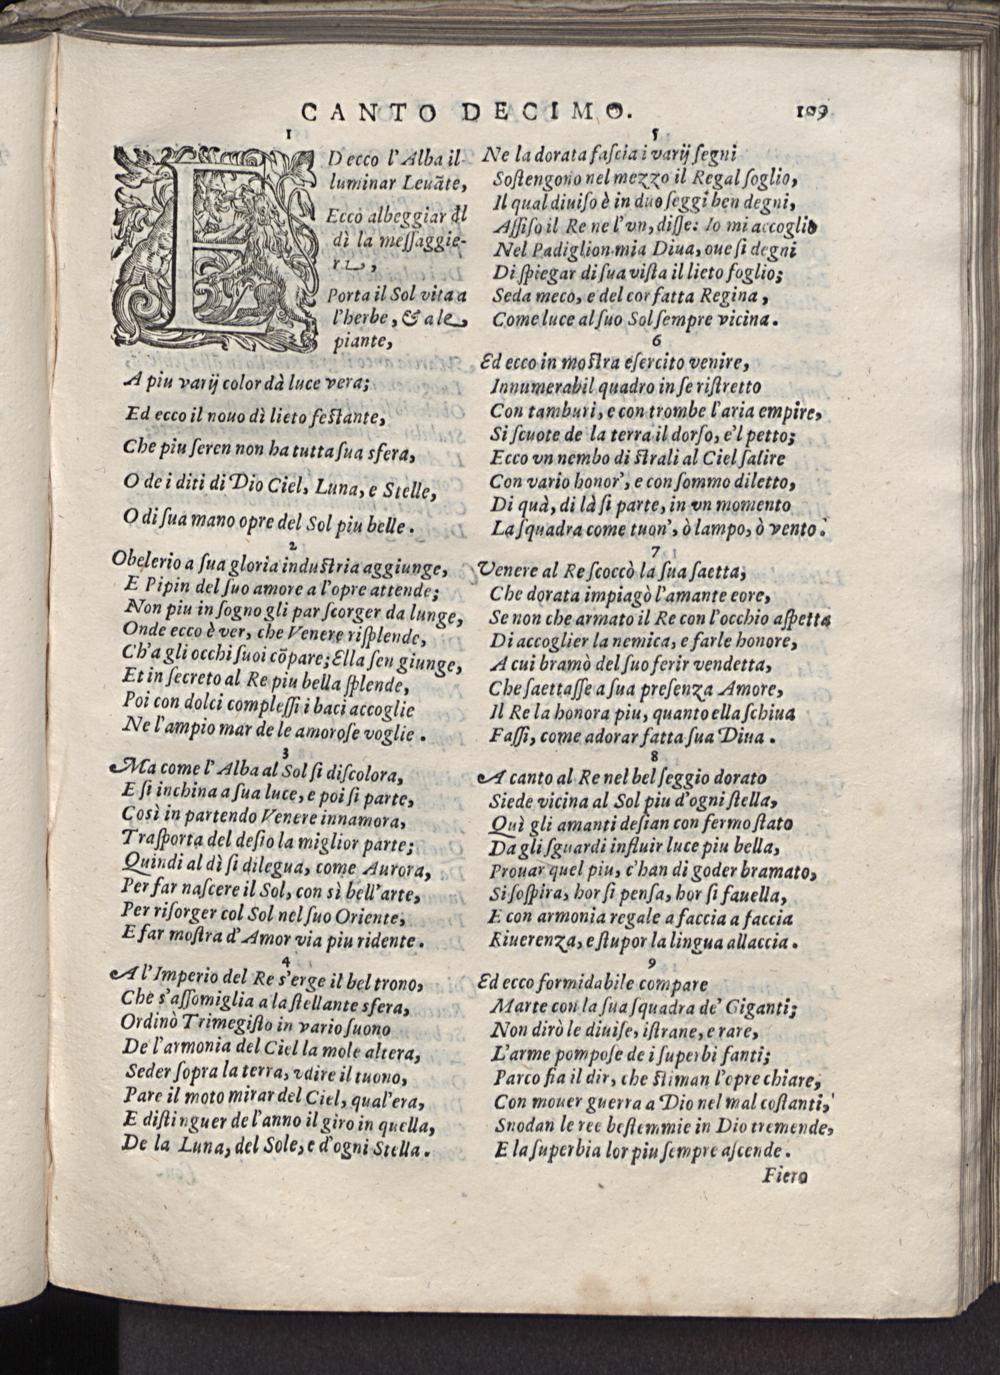 CANTO DECIMO. 109
1
ED ecco l'Alba il-
luminar Leuãte,
Ecco albeggiar dl
dì la messaggie-
ra,
Porta il Sol vita a
l'herbe, & a le
piante,
A piu varij color dà luce vera;
Ed ecco il nouo dì lieto festante,
Che piu seren non ha tutta sua sfera,
O de i diti di Dio Ciel, Luna, e Stelle,
O di sua mano opre del Sol piu belle.
2
Obelerio a sua gloria industria aggiunge,
E Pipin del suo amore a l'opre attende;
Non piu in sogno gli par scorger da lunge,
Onde ecco è ver, che Venere risplende,
Ch'a gli occhi suoi cõpare; Ella sen giunge,
Et in secreto al Re piu bella splende,
Poi con dolci complessi i baci accoglie
Ne l'ampio mar de le amorose voglie.
3
Ma come l'Alba al Sol si discolora,
E si inchina a sua luce, e poi si parte,
Così in partendo Venere innamora,
Trasporta del desio la miglior parte;
Quindi al dì si dilegua, come Aurora,
Per far nascere il Sol, con sì bell'arte,
Per risorger col Sol nel suo Oriente,
E far mostra d'Amor via piu ridente.
4
A l'Imperio del Re s'erge il bel trono,
Che s'assomiglia a la stellante sfera,
Ordinò Trimegisto in vario suono
De l'armonia del Ciel la mole altera,
Seder sopra la terra, vdire il tuono,
Pare il moto mirar del Ciel, qual'era,
E distinguer de l'anno il giro in quella,
De la Luna, del Sole, e d'ogni Stella.
5
Ne la dorata fascia i varij segni
Sostengono nel mezzo il Regal soglio,
Il qual diuiso è in duo seggi ben degni,
Assiso il Re ne l'vn, disse: Io mi accoglio
Nel Padiglion mia Diua, oue si degni
Di spiegar di sua vista il lieto foglio;
Seda meco, e del cor fatta Regina,
Come luce al suo Sol sempre vicina.
6
Ed ecco in mostra esercito venire,
Innumerabil quadro in se ristretto
Con tamburi, e con trombe l'aria empire,
Si scuote de la terra il dorso, e'l petto;
Ecco vn nembo di strali al Ciel salire
Con vario honor', e con sommo diletto,
Di quà, di là si parte, in vn momento
La squadra come tuon', ò lampo, ò vento.
7
Venere al Re scoccò la sua saetta,
Che dorata impiagò l'amante eore,
Se non che armato il Re con l'occhio aspetta
Di accoglier la nemica, e farle honore,
A cui bramò del suo ferir vendetta,
Che saettasse a sua presenza Amore,
Il Re la honora piu, quanto ella schiua
Fassi, come adorar fatta sua Diua.
8
A canto al Re nel bel seggio dorato
Siede vicina al Sol piu d'ogni stella,
Quì gli amanti desian con fermo stato
Da gli sguardi influir luce piu bella,
Prouar quel piu, c'han di goder bramato,
Si sospira, hor si pensa, hor si fauella,
E con armonia regale a faccia a faccia
Riuerenza, e stupor la lingua allaccia.
9
Ed ecco formidabile compare
Marte con la sua squadra de' Giganti;
Non dirò le diuise, istrane, e rare,
L'arme pompose de i superbi fanti;
Parco fia il dir, che stiman l'opre chiare,
Con mouer guerra a Dio nel mal costanti,
Snodan le ree bestemmie in Dio tremende,
E la superbia lor piu sempre ascende.
Fiero